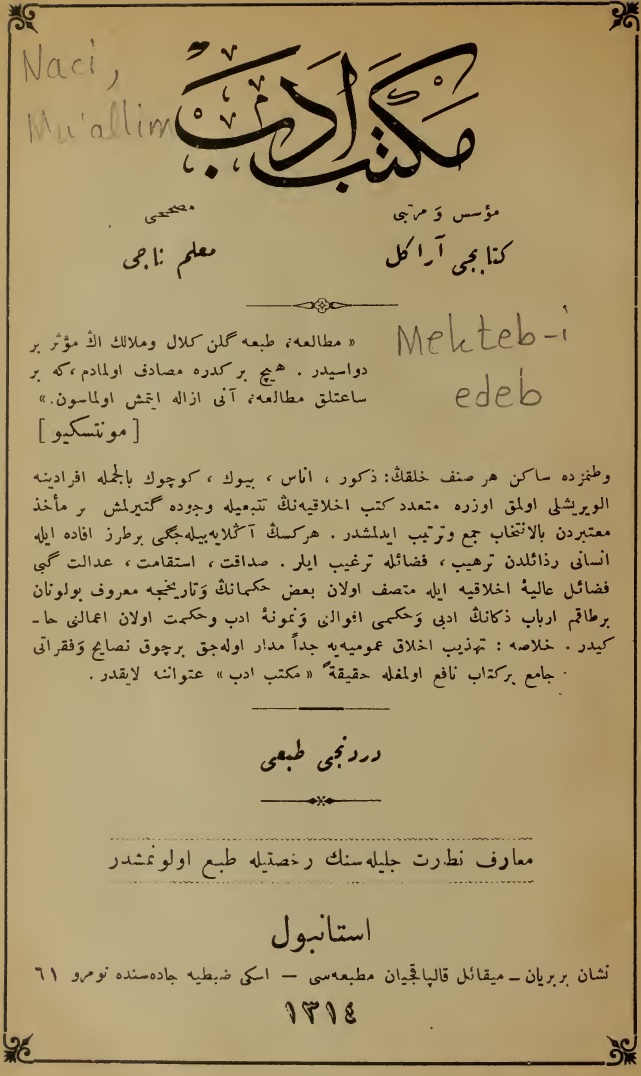 Naci,
Mu'allim
مكتب ادب
مؤسس وَ مرتبى
كتابجى آراكل
مصححى
معلم ناجى
« مطالعه، طبعه گلن كلال وملالك اڭ مؤثر بر
دواسيدر . هيچ بر كدره مصادف اولمادم ،كه بر
ساعتلق مطالعه، آنى ازاله ايتمش اولماسون.»
[ مونتسكيو ]
Mekteb-i
edeb
وطنمزده ساكن هر صنف خلقڭ: ذكور ، اناس ، بيوك ، كوچوك بالجمله افرادينه
الويريشلى اولمق اوزره متعدد كتب اخلاقيه‌نڭ تتبعيله وجوده گتيرلمش بر مأخذ
معتبردن بالانتخاب جمع وترتيب ايدلمشدر . هركسڭ آڭلايه‌بيله‌جگى بر طرز افاده ايله
انسانى رذائلدن ترهيب ، فضائله ترغيب ايلر . صداقت ، استقامت ، عدالت گبى
فضائل عاليهٔ اخلاقيه ايله متصف اولان بعض حكمانڭ وَتاريخجه معروف بولونان
برطاقم ارباب ذكانڭ ادبى وَحكمى اقوالنى وَنمونهٔ ادب وحكمت اولان اعمالنى حا-
كيدر . خلاصه : تهذيب اخلاق عموميه‌يه جداً مدار اوله‌جق برچوق نصايح وَفقراتى
جامع بركتاب نافع اولمغله حقيقةً « مكتب ادب » عنواننه لايقدر .
دردنجى طبعى
معارف نظارت جليله‌سنڭ رخصتيله طبع اولونمشدر
استانبول
نشان بربريان ــ ميقائل قالپاقجيان مطبعه‌سى — اسكى ضبطيه جاده‌سنده نومرو ٦١
١٣١٤